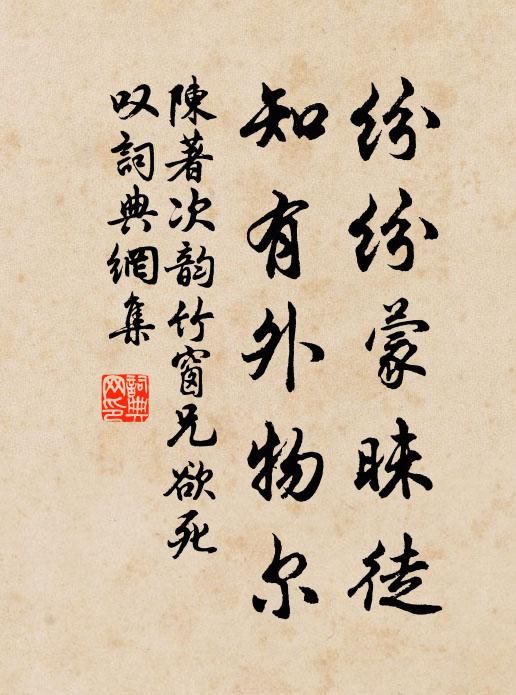 纷纷蒙昧徒
知有外物尔
陳著次韵竹窗兄欲死
叹詞典網集
詞典
网印